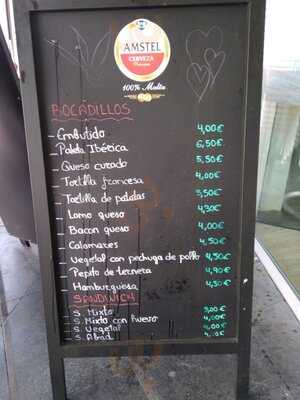 AMSTEL
CERVEZA
100% Malta
BOCADILLOS
- Embutido 4,00€
- Paleta Ibérica 6,50€
- Queso curado 5,50€
- Tortilla francesa 4,00€
- Tortilla de patatas 3,50€
- Lomo queso 4,30€
- Bacon queso 4,00€
- Calamares 4,50€
- Vegetal con pechuga de pollo 4,50€
- Pepito de ternera 4,90€
- Hamburguesa 4,30€
SANDWICH
- S. Mixto 3,00€
- S. Mixto con huevo
- S. Vegetal
- S.